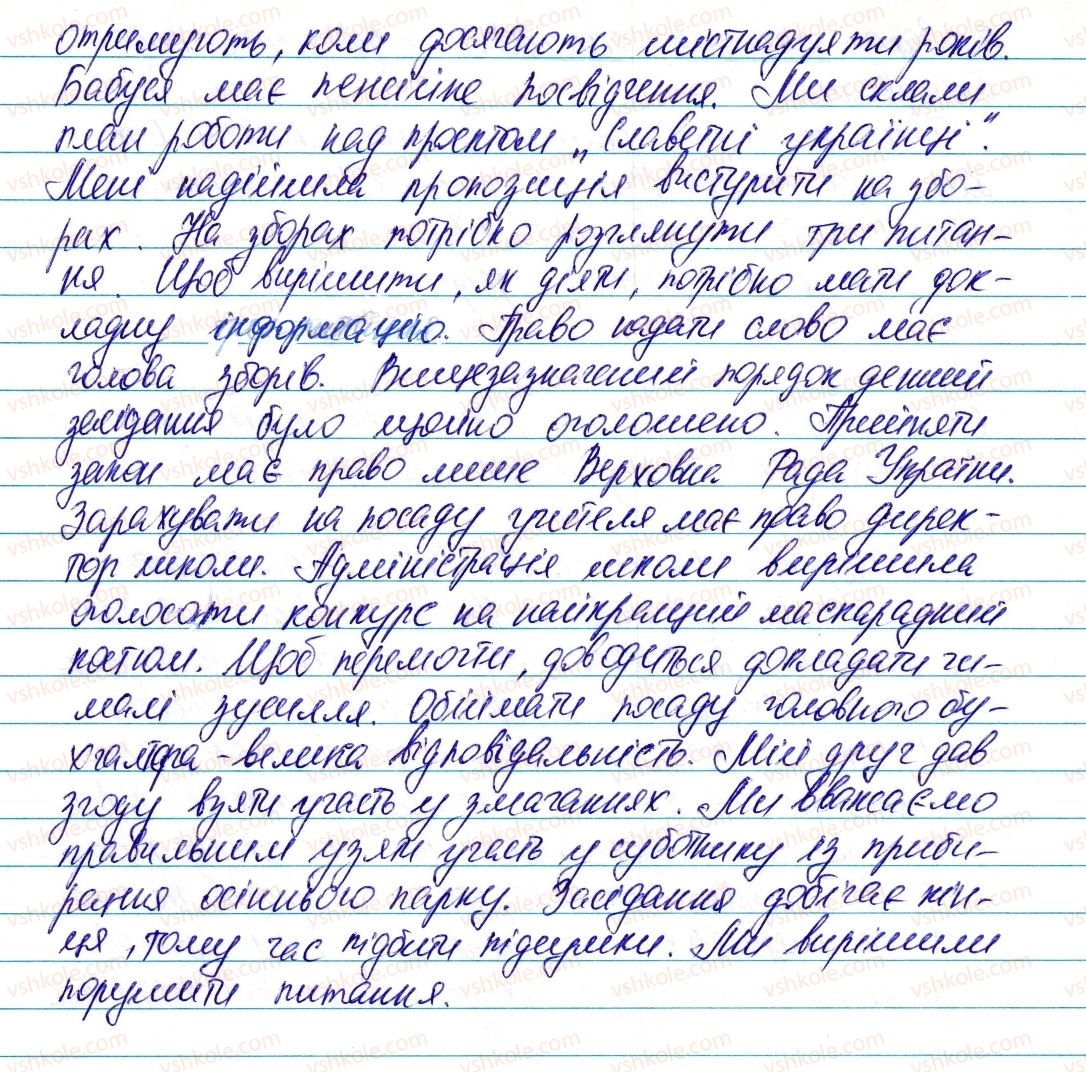 отримують, коли досягають шістнадцяти років.
Бабуся має пенсійне посвідчення. Ми склали
план роботи над проєктом „Славетні українці".
Мені надійшла пропозиція виступити на збо-
рах. На зборах потрібно розглянути три питан-
ня. Щоб вирішити, як діяти, потрібно мати док-
ладну інформацію. Право надати слово має
голова зборів. Вищезазначений порядок денний
засідання було щойно оголошено. Прийняти
закон має право лише Верховна Рада України.
Зарахувати на посаду учителя має право дирек-
тор школи. Адміністрація школи вирішила
оголосити конкурс на найкращий маскарадний
костюм. Щоб перемогти, доводиться докладати чи-
малі зусилля. Обіймати посаду головного бу-
хгалтера - велика відповідальність. Мій друг дав
згоду взяти участь у змаганнях. Ми вважаємо
правильним узяти участь у суботнику із приби-
рання осіннього парку. Засідання добігає кін-
ця, тому час підбити підсумки. Ми вирішили
порушити питання.